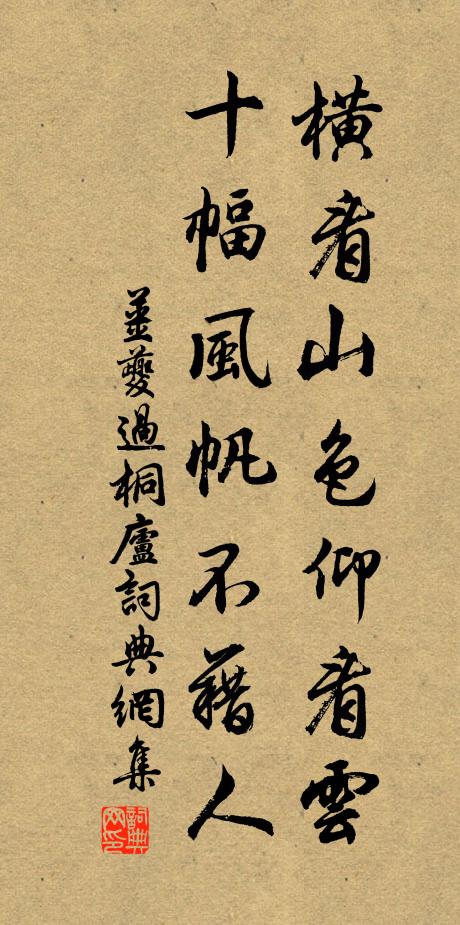 橫看山色仰看雲
十幅風帆不藉人
姜夔過桐廬詞典網集
詞典網印